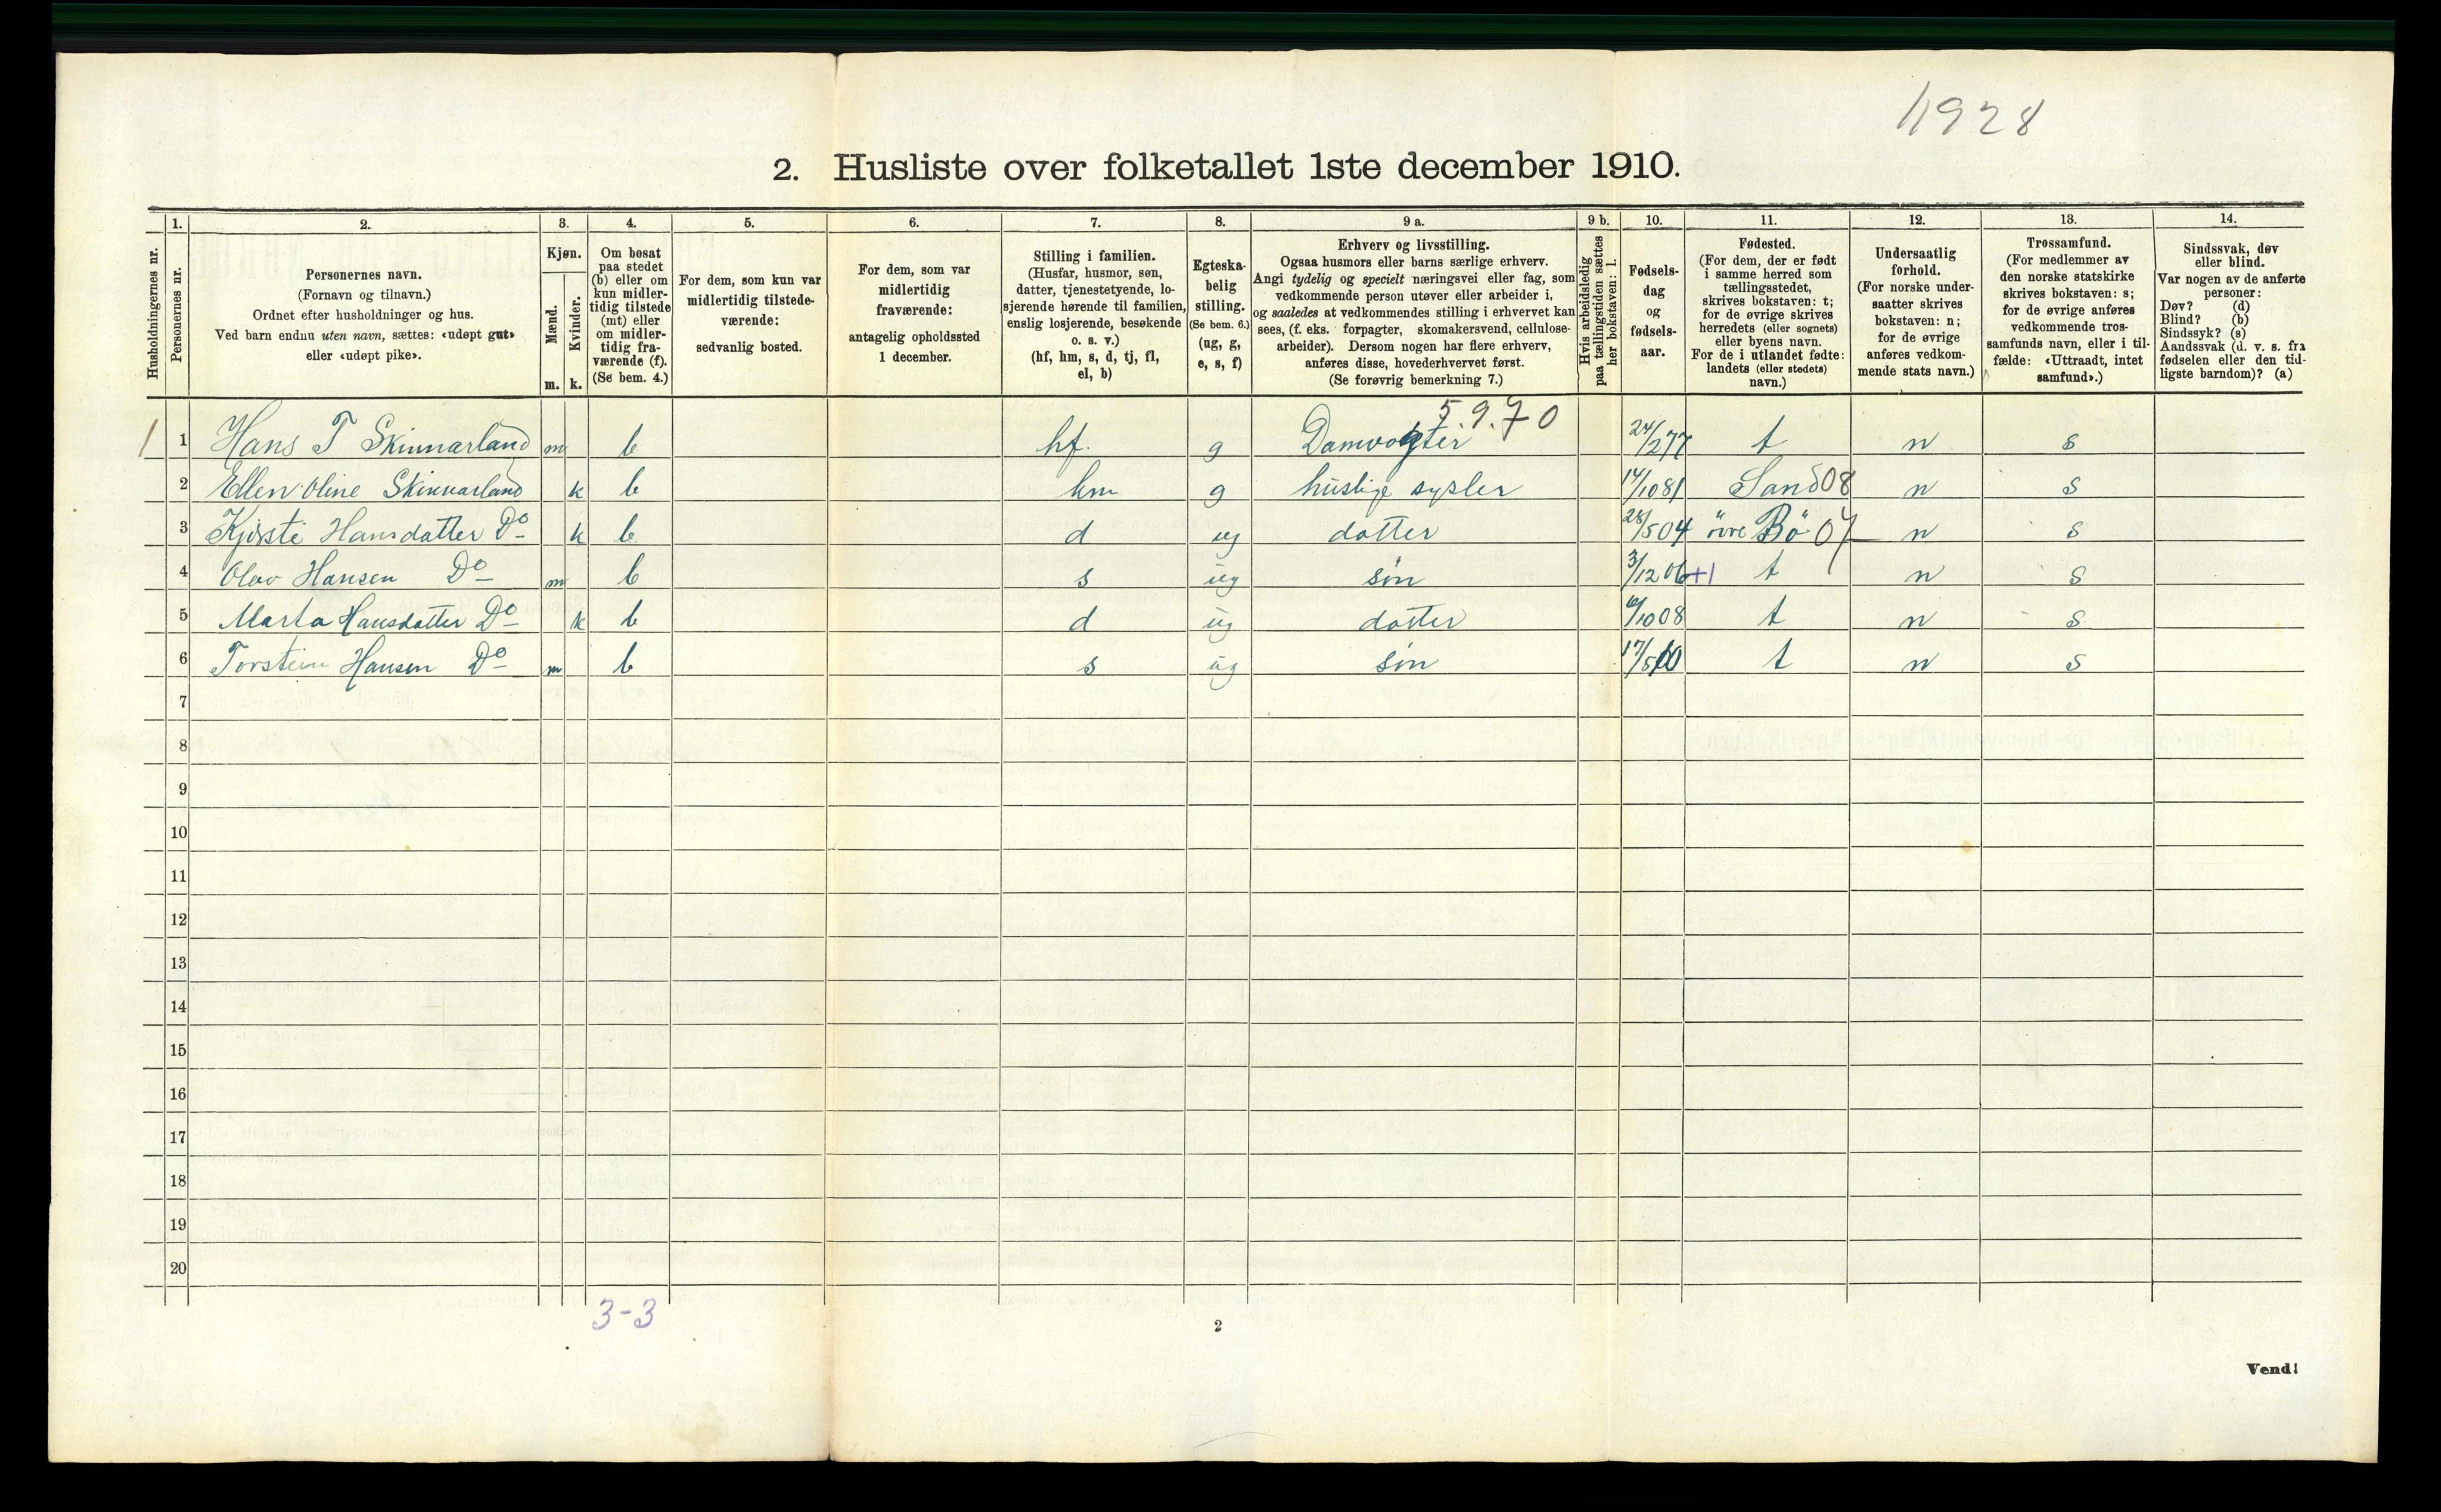 1928
2. Husliste over folketallet 1ste december 1910.
Husholdningernes nr.
1.
Personernes nr.
2.
Personernes navn.
(Fornavn og tilnavn.)
Ordnet efter husholdninger og hus.
Ved barn endnu uten navn, sættes: «udøpt gut»
eller «udøpt pike».
3.
Kjøn.
Mænd.
m.
Kvinder.
k.
4.
Om bosat
paa stedet
(b) eller om
kun midler-
tidig tilstede
(mt) eller
om midler-
tidig fra-
værende (f).
(Se bem. 4.)
5.
For dem, som kun var
midlertidig tilstede-
værende:
sedvanlig bosted.
6.
For dem, som var
midlertidig
fraværende:
antagelig opholdssted
1 december.
7.
Stilling i familien.
(Husfar, husmor, søn,
datter, tjenestetyende, lo-
sjerende hørende til familien,
enslig losjerende, besøkende
o. s. v.)
(hf, hm, s, d, tj, fl,
el, b)
8.
Egteska-
belig
stilling.
(Se bem. 6.)
(ug, g,
e, s, f)
9 a.
Erhverv og livsstilling.
Ogsaa husmors eller barns særlige erhverv.
Angi tydelig og specielt næringsvei eller fag, som
vedkommende person utøver eller arbeider i,
og saaledes at vedkommendes stilling i erhvervet kan
sees, (f. eks. forpagter, skomakersvend, cellulose-
arbeider). Dersom nogen har flere erhverv,
anføres disse, hovederhvervet først.
(Se forøvrig bemerkning 7.)
9 b.
Hvis arbeidsledig
paa tællingstiden sættes
her bokstaven: l.
10.
Fødsels-
dag
og
fødsels-
aar.
11.
Fødested.
(For dem, der er født
i samme herred som
tællingsstedet,
skrives bokstaven: t;
for de øvrige skrives
herredets (eller sognets)
eller byens navn.
For de i utlandet fødte:
landets (eller stedets)
navn.)
12.
Undersaatlig
forhold.
(For norske under-
saatter skrives
bokstaven: n;
for de øvrige
anføres vedkom-
mende stats navn.)
13.
Trossamfund.
(For medlemmer av
den norske statskirke
skrives bokstaven: s;
for de øvrige anføres
vedkommende tros-
samfunds navn, eller i til-
fælde: «Uttraadt, intet
samfund».)
14.
Sindssvak, døv
eller blind.
Var nogen av de anførte
personer:
Døv? (d)
Blind? (b)
Sindssyk? (s)
Aandssvak (d. v. s. fra
fødselen eller den tid-
ligste barndom)? (a)
5.9.70
1 1 Hans T Skinnarland m b hf. g Damvogter 24/2 77 t n s
2 Ellen Oline Skinnarland k b hm g huslige sysler 14/10 81 Sand 08 n s
3 Kjersti Hansdatter Do k b d ug datter 28/5 04 "øvre Bö" 07 n s
4 Olav Hansen Do m b s ug søn 3/12 06 +1 t n s
5 Marta Hansdatter Do k b d ug datter 6/10 08 t n s
6 Torstein Hansen Do m b s ug søn 17/5 10 t n s
7
8
9
10
11
12
13
14
15
16
17
18
19
20
3-3
2
Vend!